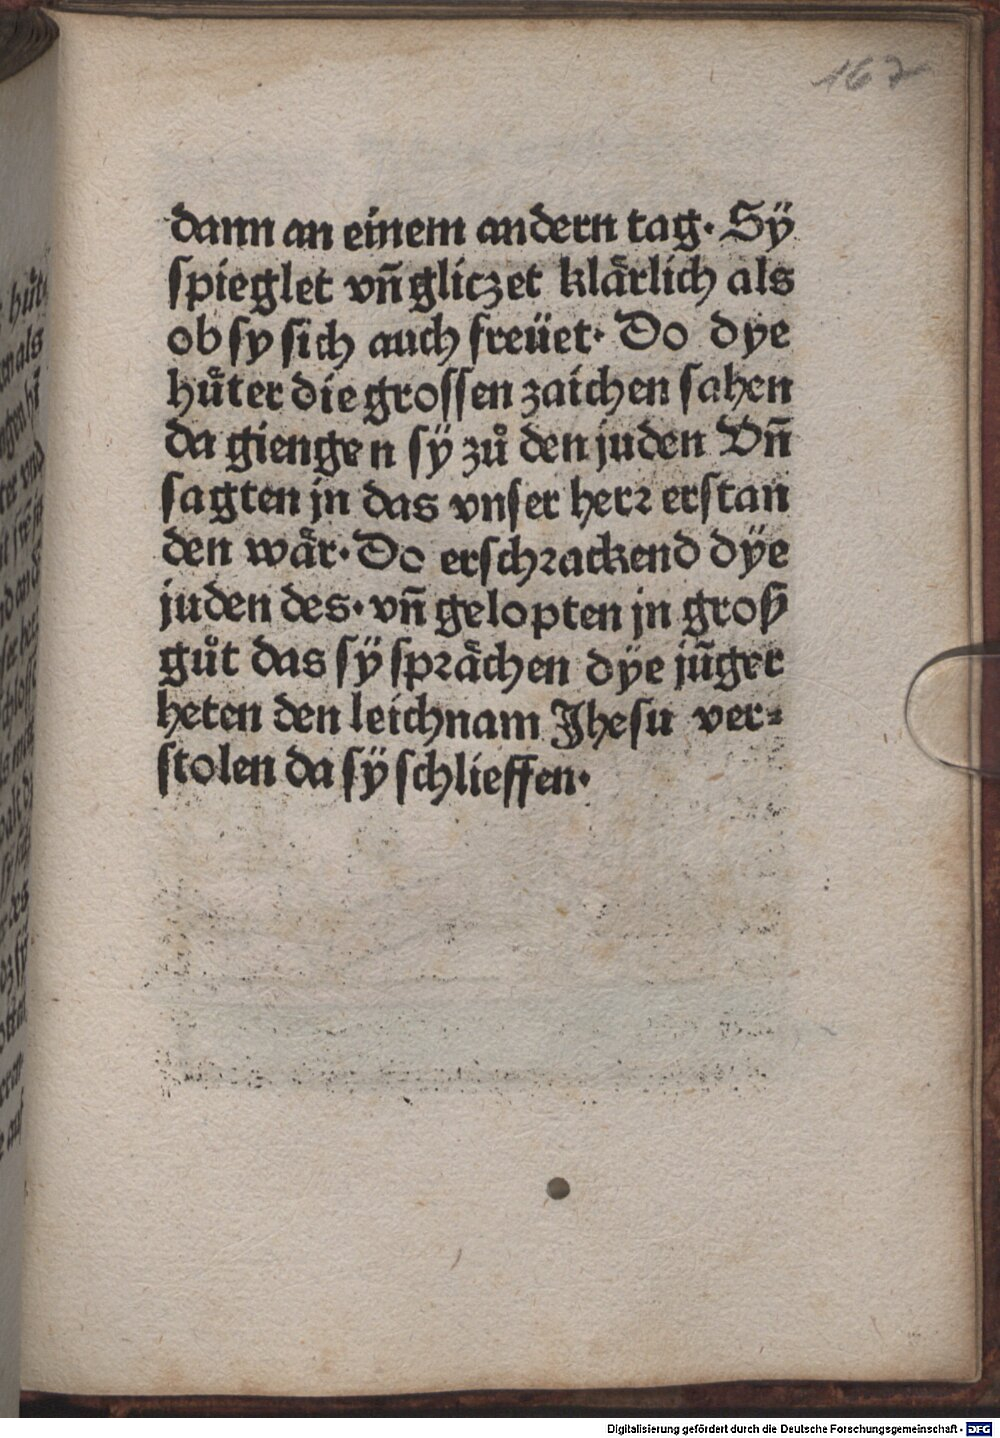 167
dann an einem andern tag· Sÿ
spieglet vn̄ gliczet klårlich als
ob sy sich auch freüet· Do dye
hůter die grossen zaichen sahen
da giengen sÿ zů den juden Vn̄
sagten jn das vnser herr erstan
den wår· Do erschrackend dÿe
juden des· vn̄ gelopten jn groß
gůt das sÿ språchen dÿe jūger
heten den leichnam Jhesu ver⸗
stolen da sÿ schlieffen·
Digitalisierung gefördert durch die Deutsche Forschungsgemeinschaft - DFG